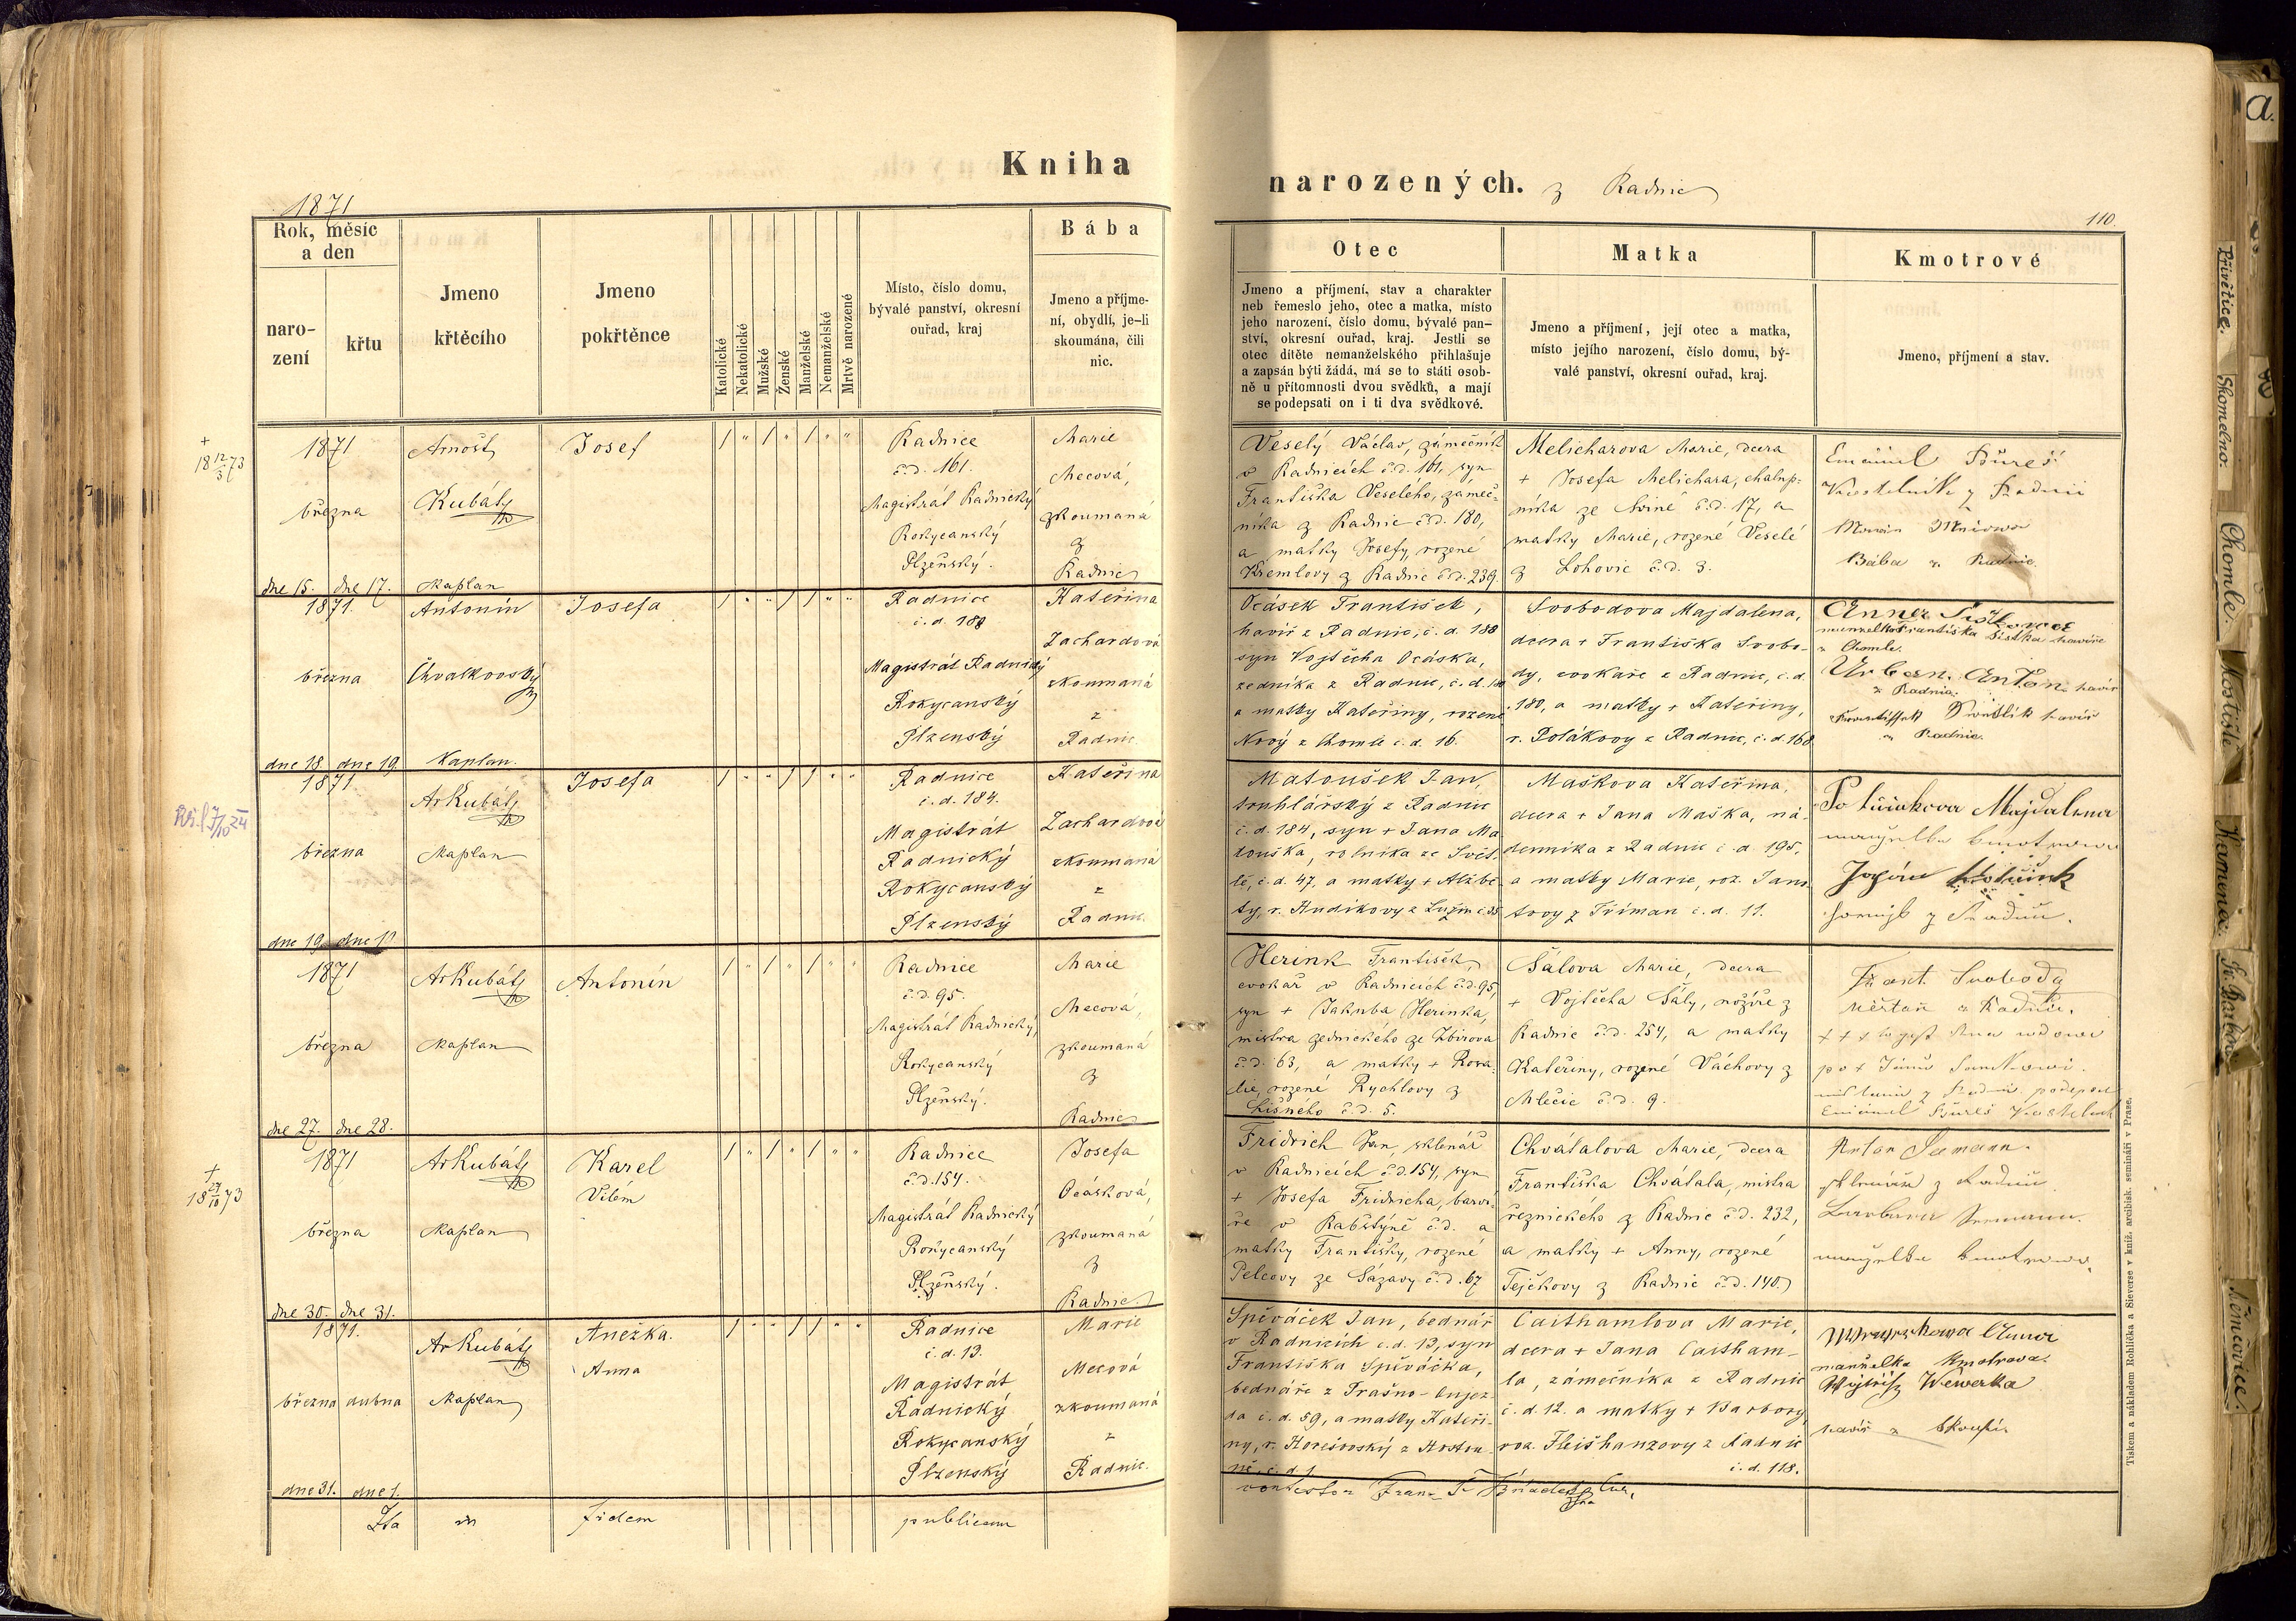 Kniha
narozených. z Radnic
1871
110.
Rok, měsíc
a den
naro-
zení
křtu
Jmeno
křtěcího
Jmeno
pokřtěnce
Katolické
Nekatolické
Mužské
Ženské
Manželské
Nemanželské
Mrtvě narozené
Místo, číslo domu,
bývalé panství, okresní
ouřad, kraj
Bába
Jmeno a příjme-
ní, obydlí, je-li
skoumána, čili
nic.
Otec
Jmeno a příjmení, stav a charakter
neb řemeslo jeho, otec a matka, místo
jeho narození, číslo domu, bývalé pan-
ství, okresní ouřad, kraj. Jestli se
otec dítěte nemanželského přihlašuje
a zapsán býti žádá, má se to státi osob-
ně u přítomnosti dvou svědků, a mají
se podepsati on i ti dva svědkové.
Matka
Jmeno a příjmení, její otec a matka,
místo jejího narození, číslo domu, bý-
valé panství, okresní ouřad, kraj.
Kmotrové
Jmeno, příjmení a stav.
+
18 12/3 73
1871
března
dne 15. dne 17.
Arnošt
Kubátz
Kaplan
Josef
Radnice
č.d. 161.
Magistrát Radnický
Rokycanský
Plzeňský.
Marie
Mecová,
zkoumaná
z
Radnic
Veselý Václav, zámečník
v Radnicích č.d. 161, syn
Františka Veselého, zámeč-
níka z Radnic č.d. 180,
a matky Josefy, rozené
Kremlovy z Radnic č.d. 239.
Melicharova Marie, dcera
+ Josefa Melichara, chalup-
níka ze Sviné č.d. 17, a
matky Marie, rozené Veselé
z Lohovic č.d. 3.
Emánuel Bureš
Kostelník z Radnic
Bába z Radnic
1871.
března
dne 18. dne 19.
Antonín
Chvalkovský
Kaplan.
Josefa
Radnice
č.d. 188
Magistrát Radnický
Rokycanský
Plzenský
Kateřina
Zachardová
zkoumaná
z
Radnic.
Ocásek František,
havíř z Radnic, č.d. 188
syn Vojtěcha Ocáska,
zedníka z Radnic, č.d. 188
a matky Kateřiny, rozené
Nový z Chomle č.d. 16.
Svobodova Majdalena,
dcera + Františka Svobo-
dy, cvokaře z Radnic, č.d.
180, a matky + Kateřiny,
r. Polákovy z Radnic, č.d. 168
Anna Šistkova
manzelka Františka Šistka havíře
z Chomle.
Urban Anton havíř
z Radnic.
havíř
z Radnic.
1871.
března
dne 19.
ArKubátz
Kaplan
Josefa
Radnice
č.d. 184.
Magistrát
Radnický
Rokycanský
Plzenský
Kateřina
Zachardová
zkoumaná
z
Radnic.
Matoušek Jan,
truhlářský z Radnic
č.d. 184, syn + Jana Ma
touška, rolníka ze Svět-
lé, č.d. 47, a matky + Alžbě-
ty, r. Hudikovy z
Maškova Kateřina,
dcera + Jana Maška, ná-
denníka z Radnic č.d. 195,
a matky Marie, roz. Jans
tovy z Tříman č.d. 11.
Majdalena
manželka kmotrova
1871
března
dne 27. dne 28.
ArKubátz
Kaplan
Antonín
Radnice
č.d. 95.
Magistrát Radnický,
Rokycanský
Plzeňský.
Marie
Mecová,
zkoumaná
z
Radnic
Herink František,
cvokař v Radnicích č.d. 95,
syn + Jakuba Herinka,
mistra zednického ze Zbirova
č.d. 63, a matky + Rosa-
lie, rozené Rychlovy z
Lišného č.d. 5.
Šálova Marie, dcera
+ Vojtěcha Šály, nožíře z
Radnic č.d. 254, a matky
Kateřiny, rozené Váchovy z
Mlečic č.d. 9.
Frant. Svoboda
měšťan z Radnic.
Emánuel Bureš Kostelník
+
18 27/10 73
1871
března
dne 30. dne 31.
ArKubátz
Kaplan
Karel
Vilém
Radnice
č.d. 154.
Magistrát Radnický
Rokycanský
Plzeňský.
Josefa
Ocásková,
zkoumaná
z
Radnic.
Fridrich Jan, sklenář
v Radnicích č.d. 154, syn
+ Josefa Fridricha, barví-
ře v Rabštýně č.d. a
matky Františky, rozené
Pelcovy ze Sázavy č.d. 67
Chvátalova Marie, dcera
Františka Chvátala, mistra
řeznického z Radnic č.d. 232,
a matky + Anny, rozené
Tejčkovy z Radnic č.d. 140
Anton Seemann.
sklenář z Radnic
Barbara Seemann.
manželka kmotrova.
1871.
března dubna
dne 31. dne 1.
ArKubátz
Kaplan
Anežka.
Anna
Radnice
č.d. 13.
Magistrát
Radnický
Rokycanský
Plzenský
Marie
Mecová
zkoumaná
z
Radnic.
Spěváček Jan, bednář
v Radnicích č.d. 13, syn
Františka Spěváčka,
bednáře z Trašno-Oujez-
da č.d. 59, a matky Kateři-
ny, r. Horešovský z
č.d. 1
Caithamlova Marie,
dcera + Jana Caitham-
la, zámečníka z Radnic
č.d. 12. a matky + Barbory,
roz. Fleišhanzovy z Radnic
č.d. 118.
manželka kmotrova.
Wojtěch Wewerka
havíř z Skoupí.
Ita in fidem publicam
a.
Přívětice.
Skomelno.
Chomle.
Mostiště
Němčovice.
Tiskem a nákladem Rohlíčka a Sieverse v kníž. arcibisk. semináři v Praze.